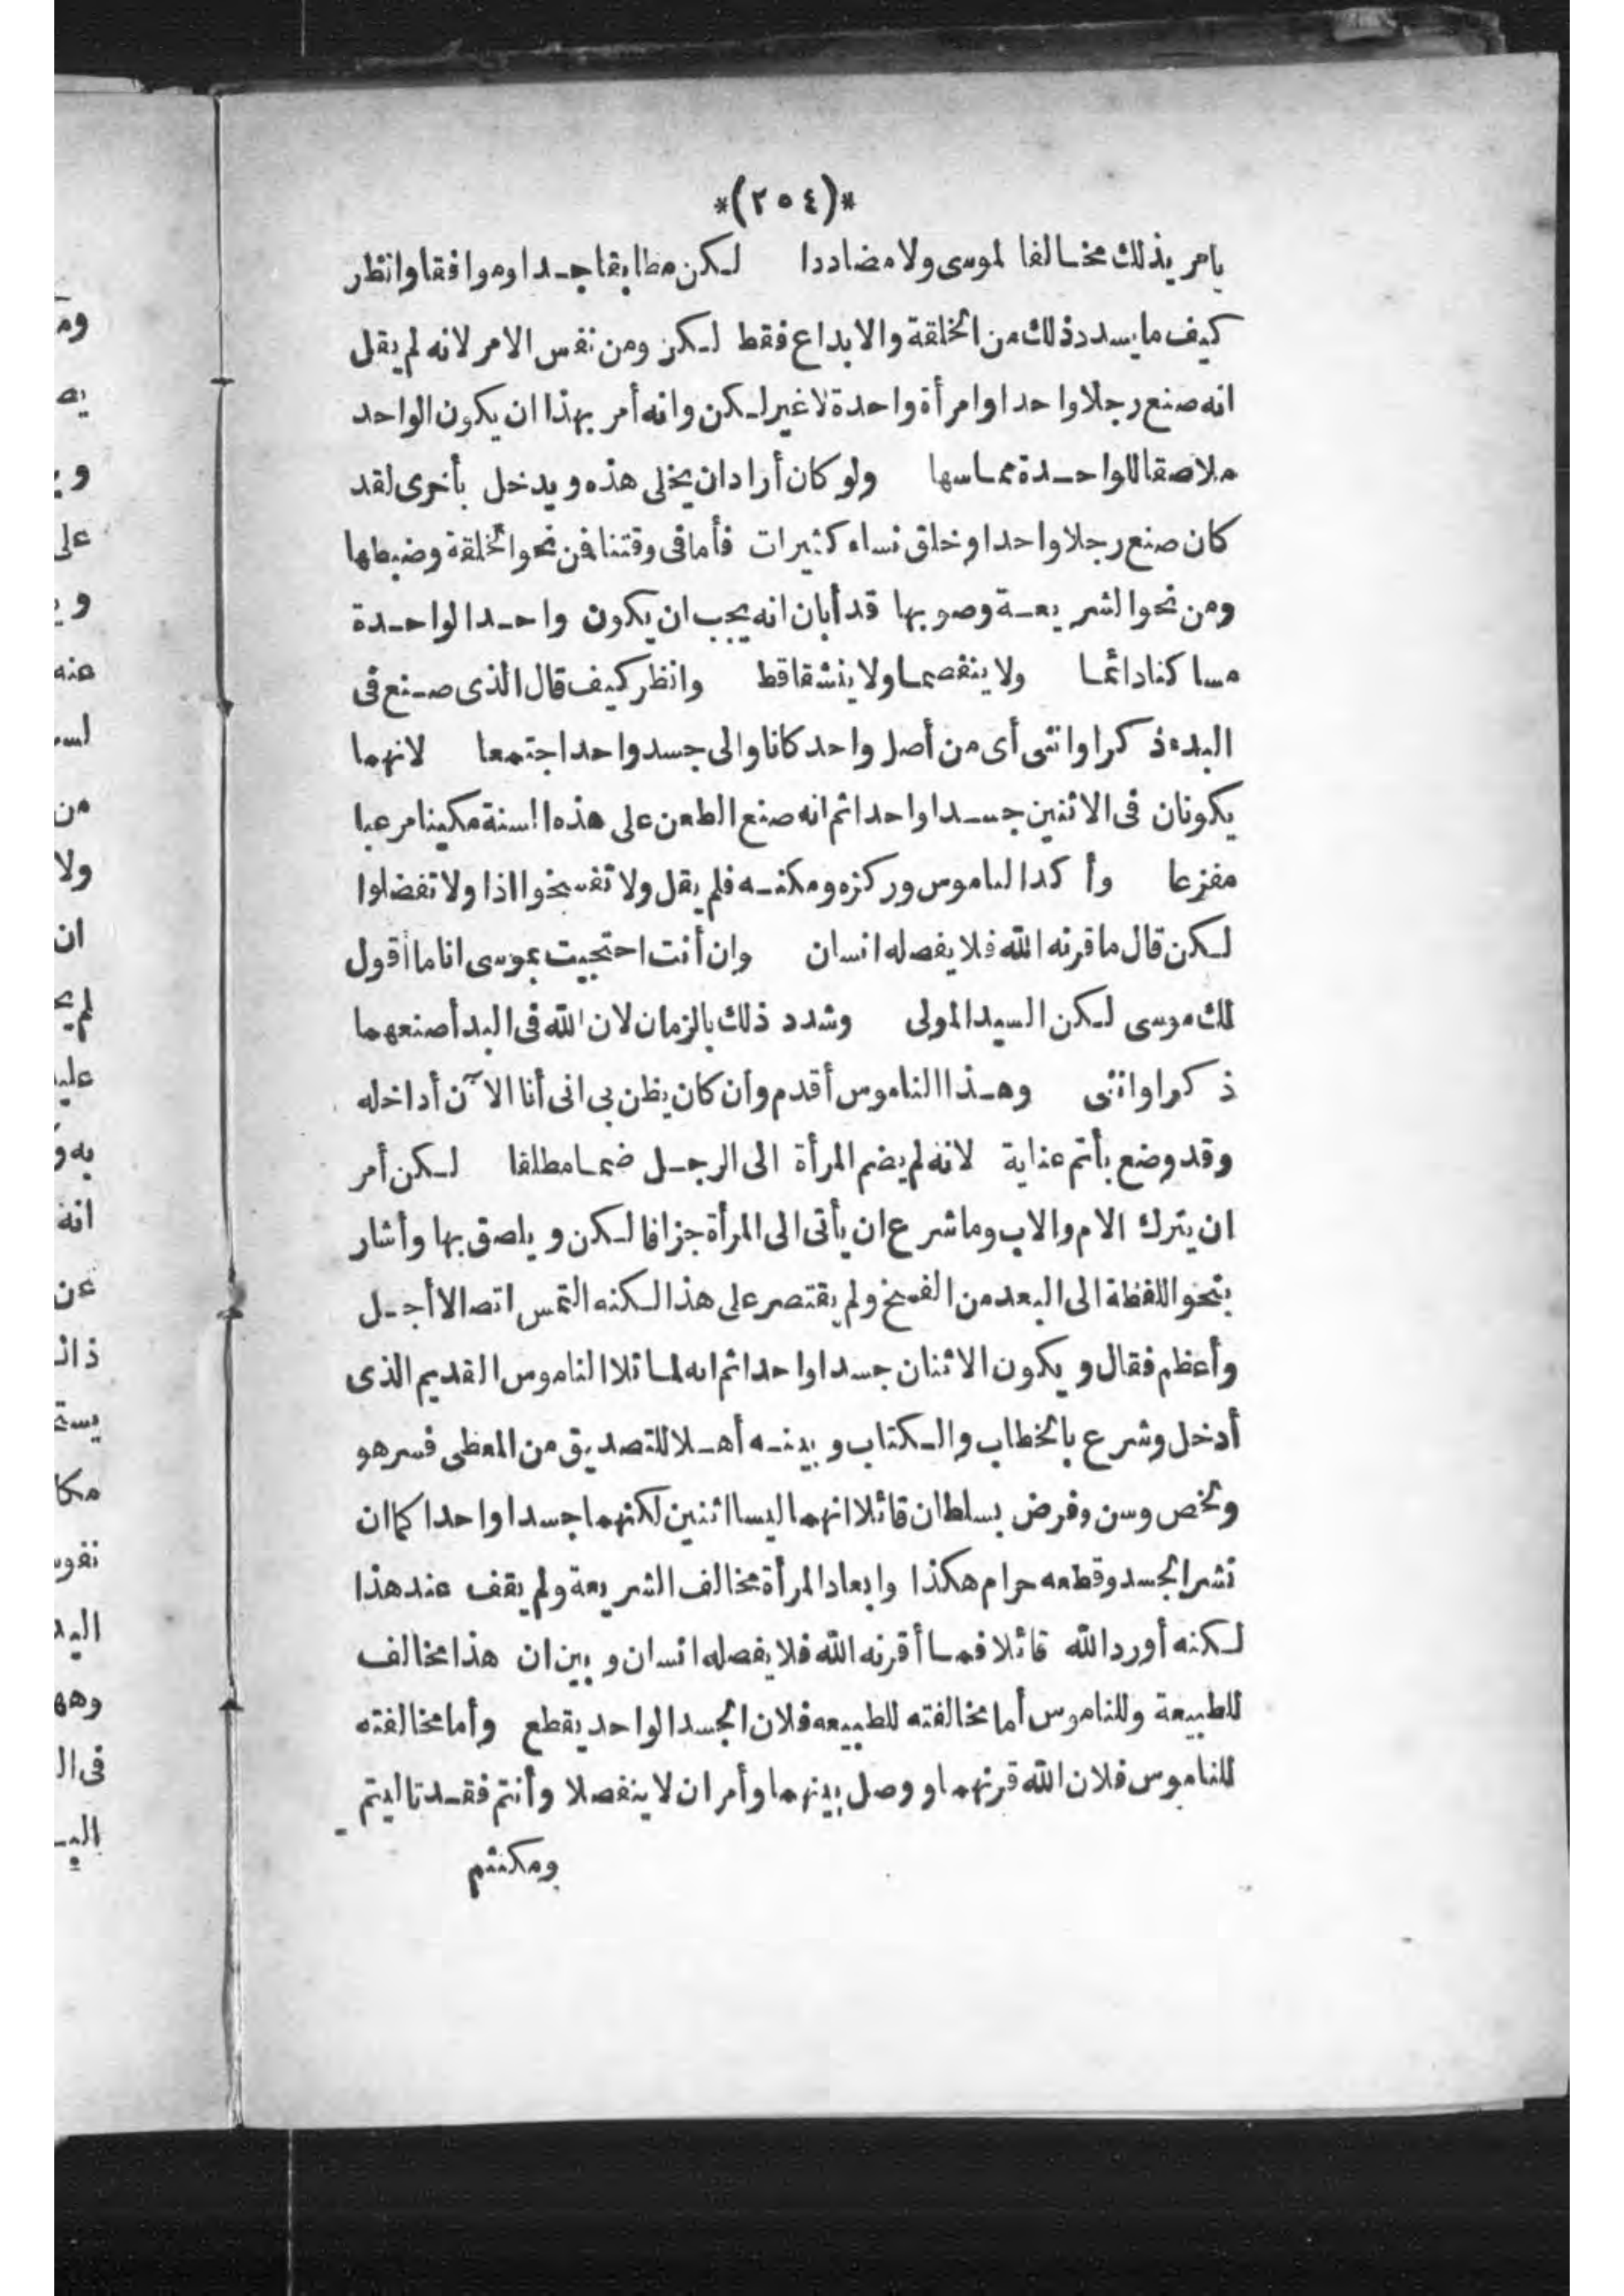 *(٢٥٤)*
يامر بذلك مخالفا لموسى ولا مضاددا لكن مطابقا جدا وموافقا وانظر
كيف ما يسدد ذلك من الخلقة والابداع فقط لكن ومن نفس الامر لانه لم يقل
انه صنع رجلا واحدا وامرأة واحدة لا غير لكن وانه أمر بهذا ان يكون الواحد
ملاصقا للواحدة مماسها ولو كان أراد ان يخلى هذه ويدخل بأخرى لقد
كان صنع رجلا واحدا وخلق نساء كثيرات فأما فى وقتنا فمن نحو الخلقة وضبطها
ومن نحو الشريعة وصوبها قد أبان انه يجب ان يكون واحدا لواحدة
مساكنا دائما ولا ينفصما ولا ينشقا قط وانظر كيف قال الذى صنع فى
البدء ذكرا وانثى أى من أصل واحد كانا والى جسد واحد اجتمعا لانهما
يكونان فى الاثنين جسدا واحدا ثم انه صنع الطعن على هذه السنة مكينا مرعبا
مفزعا وأكد الناموس وركزه ومكنه فلم يقل ولا تفسخوا اذا ولا تفضلوا
لكن قال ما قرنه الله فلا يفصله انسان وان أنت احتجيت بموسى انا ما أقول
لك موسى لكن السيد المولى وشدد ذلك بالزمان لان الله فى البدأ صنعهما
ذكرا وانثى وهذا الناموس أقدم وان كان يظن بى انى أنا الآن أداخله
وقد وضع بأتم عناية لانه لم يضم المرأة الى الرجل ضما مطلقا لكن أمر
ان يترك الام والاب وما شرع ان يأتى الى المرأة جزافا لكن ويلصق بها وأشار
بنحو اللفظة الى البعد من الفسخ ولم يقتصر على هذا لكنه التمس اتصالا أجل
وأعظم فقال ويكون الاثنان جسدا واحدا ثم انه لما تلا الناموس القديم الذى
أدخل وشرع بالخطاب والكتاب وبينه أهلا للتصديق من المعطى فسر هو
ولخص وسن وفرض بسلطان قائلا انهما ليسا اثنين لكنهما جسدا واحدا كما ان
نشر الجسد وقطعه حرام هكذا وابعاد المرأة مخالف الشريعة ولم يقف عند هذا
لكنه أورد الله قائلا فما أقرنه الله فلا يفصله انسان وبين ان هذا مخالف
للطبيعة وللناموس أما مخالفته للطبيعه فلان الجسد الواحد يقطع وأما مخالفته
للناموس فلان الله قرنهما ووصل بينهما وأمر ان لا ينفصلا وأنتم فقد تاليتم
ومكنتم